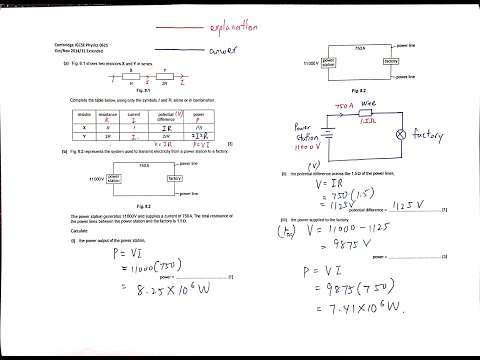 explanation
answer
Cambridge IGCSE Physics 0625
Oct/Nov 2014/32 Extended
(a) Fig. 8.1 shows two resistors X and Y in series.
X Y
I R I 2R I
Fig. 8.1
Complete the table below, using only the symbols I and R, alone or in combination.
resistor resistance current potential difference (V) power
R I P
X R I IR I²R
Y 2R I 2IR
V = IR P=VI
[3]
(b) Fig. 8.2 represents the system used to transmit electricity from a power station to a factory.
750 A power line
11 000 V power station factory
power line
Fig. 8.2
The power station generates 11 000 V and supplies a current of 750 A. The total resistance of
the power lines between the power station and the factory is 1.5 Ω.
Calculate
(i) the power output of the power station,
P = VI
= 11000 (750)
power = [1]
= 8.25 × 10⁶ W
750 A power line
11 000 V power station factory
power line
Fig. 8.2
750A Wire
I 1.5Ω
Power station
11000 V
factory
(V)
(ii) the potential difference across the 1.5 Ω of the power lines,
V = IR
= 750 (1.5)
= 1125V
potential difference = 1125 V [1]
(iii) the power supplied to the factory.
V = 11000 − 1125
= 9875 V
power = [3]
P = VI
= 9875 (750)
= 7.41 × 10⁶ W.